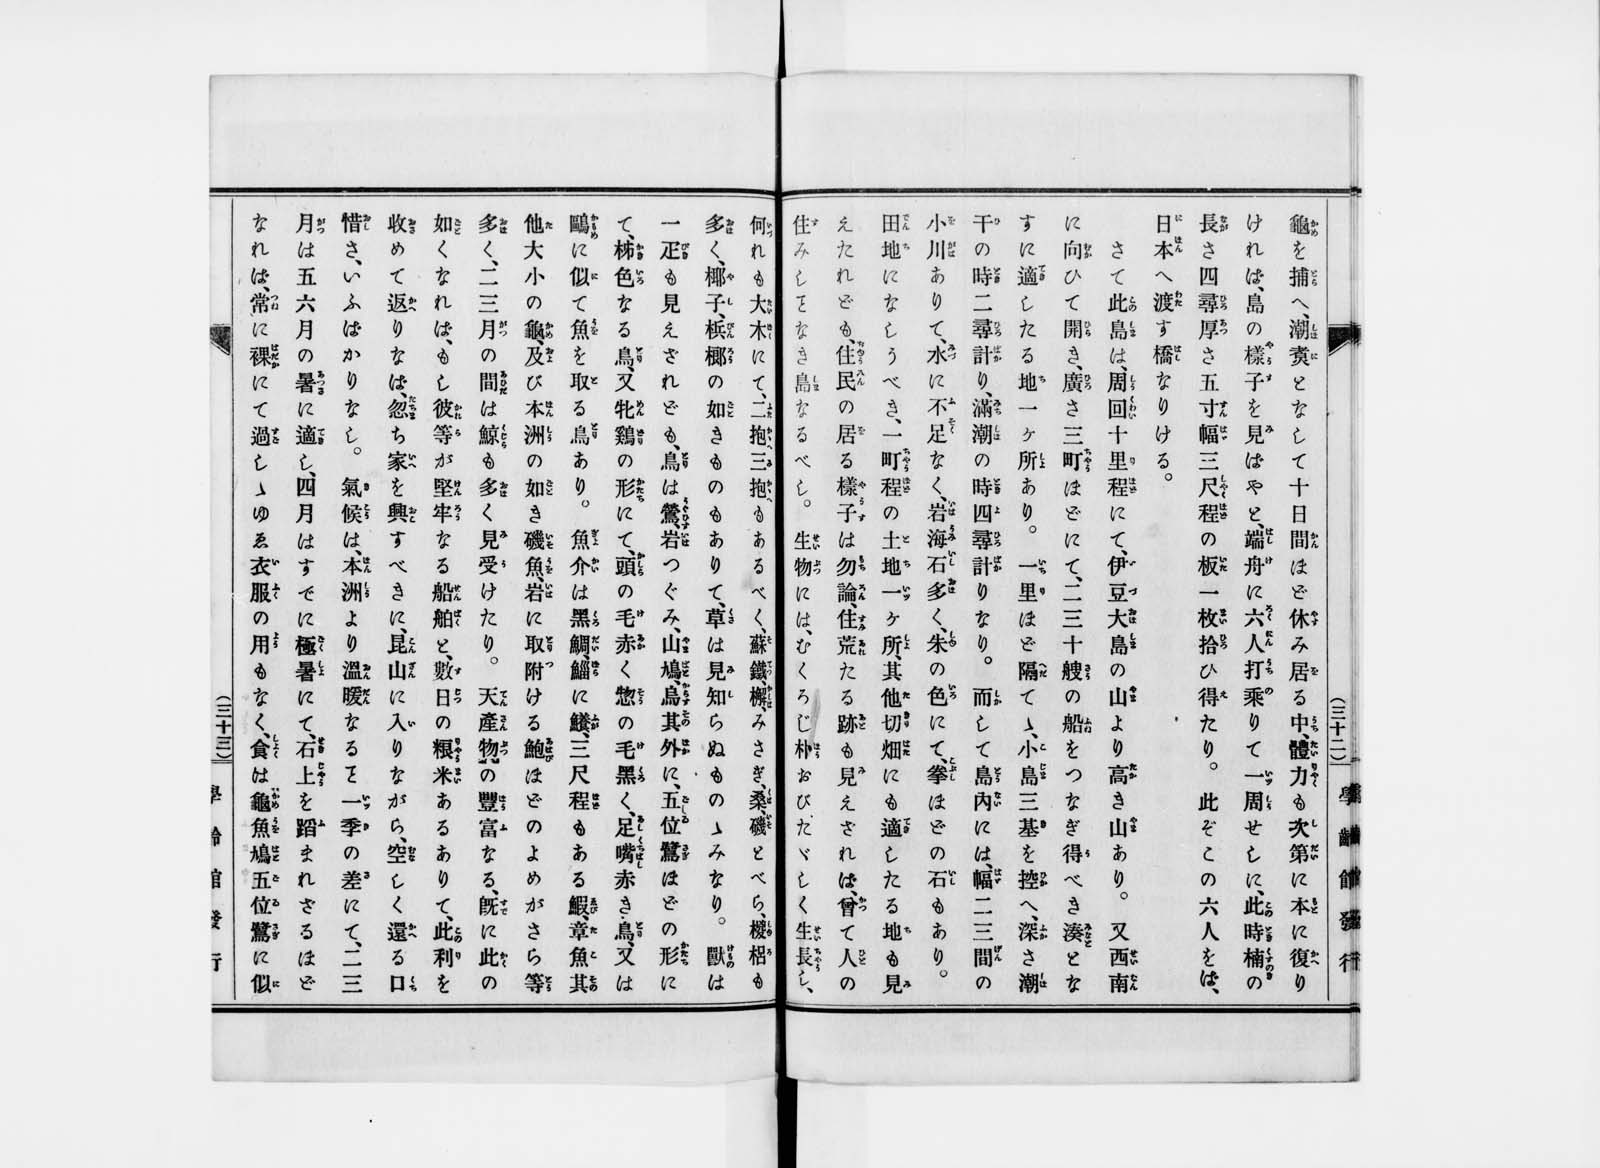 龜を捕へ、潮煑となして十日間ほど休み居る中、體力も次第に本に復り
ければ、島の樣子を見ばやと、端舟に六人打乘りて一周せしに、此時楠の
長さ四尋厚さ五寸幅三尺程の板一枚拾ひ得たり。此ぞこの六人をば、
日本へ渡す橋なりける。
さて此島は、周回十里程にて、伊豆大島の山より高き山あり。又西南
に向ひて開き、廣さ三町ほどにて、二三十艘の船をつなぎ得べき湊とな
すに適したる地一ヶ所あり。一里ほど隔てゝ、小島三基を控へ、深さ潮
干の時二尋計り、滿潮の時四尋計りなり。而して島內には、幅二三間の
小川ありて、水に不足なく、岩海石多く、朱の色にて、拳ほどの石もあり。
田地になしうべき、一町程の土地一ヶ所、其他切畑にも適したる地も見
えたれども、住民の居る樣子は勿論、住荒たる跡も見えざれば、曾て人の
住みしことなき島なるべし。生物には、むくろじ朴おびたゞしく生長し、
何れも大木にて、二抱三抱もあるべく、蘇鐵、檞、みさぎ、桑、磯とべら、椶梠も
多く、椰子、梹榔の如きものもありて、草は見知らぬものゝみなり。獸は
一疋も見えざれども、鳥は鶯、岩つぐみ、山鳩、烏其外に、五位鷺ほどの形に
て、柹色なる鳥、又牝鷄の形にて、頭の毛赤く惣の毛黑く、足嘴赤き鳥、又は
鷗に似て魚を取る鳥あり。魚介は黑鯛、鯔に鱶、三尺程もある鰕、章魚其
他大小の龜、及び本洲の如き磯魚、岩に取附ける鮑ほどのよめがさら等
多く、二三月の間は鯨も多く見受けたり。天產物の豐富なる、旣に此の
如くなれば、もし彼等が堅牢なる船舶と、數日の粮米あるありて、此利を
收めて返りなば、忽ち家を興すべきに、昆山に入りながら、空しく還る口
惜さ、いふばかりなし。氣候は、本洲より溫暖なること一季の差にて、二三
月は五六月の暑に適し、四月はすでに極暑にて、石上を蹈まれざるほど
なれば、常に裸にて過しゝゆゑ衣服の用もなく、食は龜魚鳩五位鷺に似
(三十二)
學齡館發行
(三十三)
學齡館發行